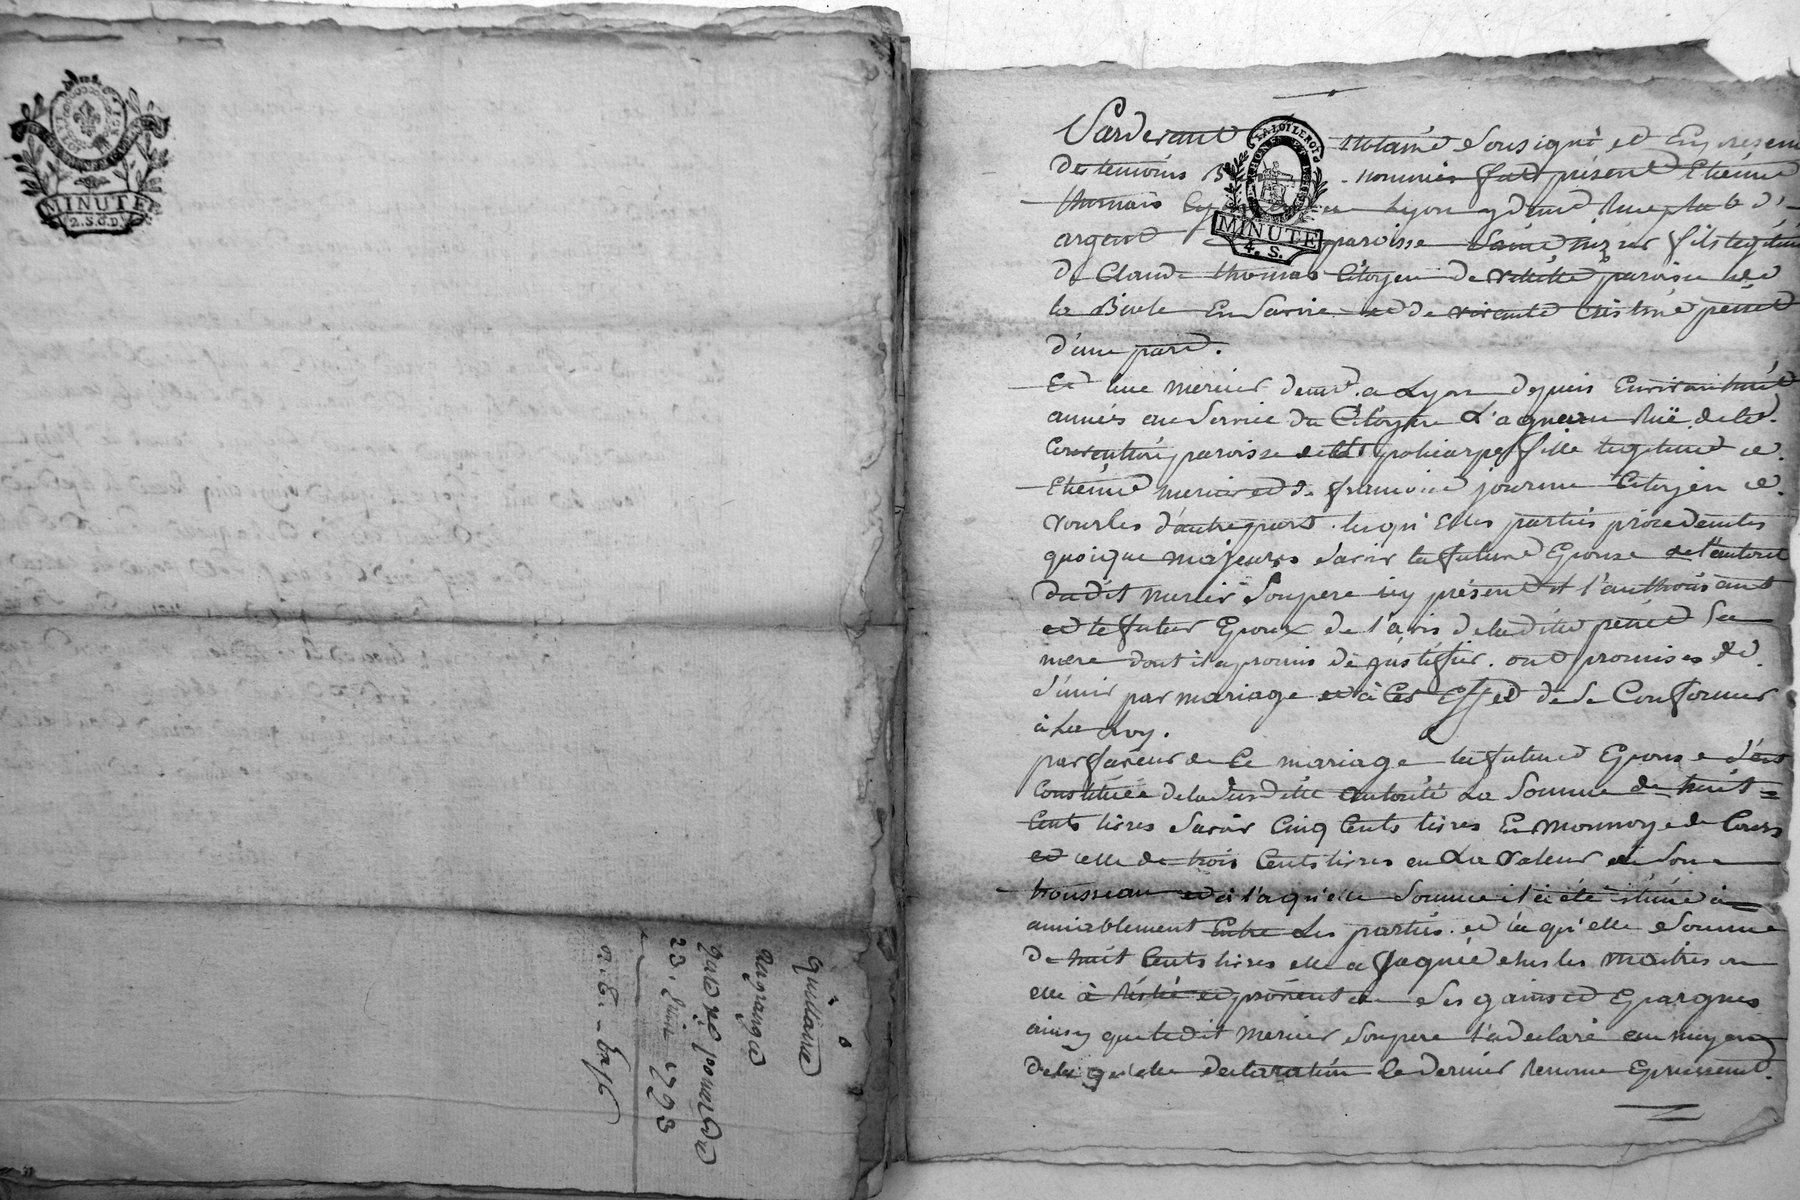 MINUTE
2. S. 6. D.
Guillaume
23. Juin 1793
LA LOI LE ROI
MINUTE
4. S.
Pardevant notaire Sousigné et En presence
des temoins nommés fut présent Etienne
thomas Lyon y demt Rue plat d'
argent paroisse Saint nizier fils legitime
de Claude thomas Citoyen de paroisse de
la En Savoie et de vivante Cristine perret
d'une part.
Et mercier demt. a Lyon depuis Environ huit
années au Service du Citoyen Ruë de la
Convention paroisse de St policarpe fille legitime de
Etienne mercier et de francoise journu Citoyen de
vourles d'autre part. lesqu'elles parties procedantes
quoique majeures savoir la future Epouse de l'autorité
dudit mercier Son pere icy présent et l'authorisant
et le futur Epoux de l'avis de la ditte perret Sa
mere dont il a promis de justifier. ont promises de
s'unir par mariage et à cet Effet de Se Conformer
à La Loy.
par faveur de Ce mariage la future Epouse s'est
Constituée de la Susditte autorité La Somme de huit=
Cents livres Savoir Cinq Cents livres En Monnoye de Cours
et celle de trois Cents livres en La valeur de Son
trousseau et à laqu'elle Somme il a été
amiablement Entre Les parties. et laqu'elle Somme
de huit Cents livres elle a gagnée chés les Maitres ou
elle à résté et provenant de Ses gains et Epargnes
ainsy que ledit mercier Son pere l'a declaré au moyen
de laquelle declaration Ce dernier Renonce Expressement.